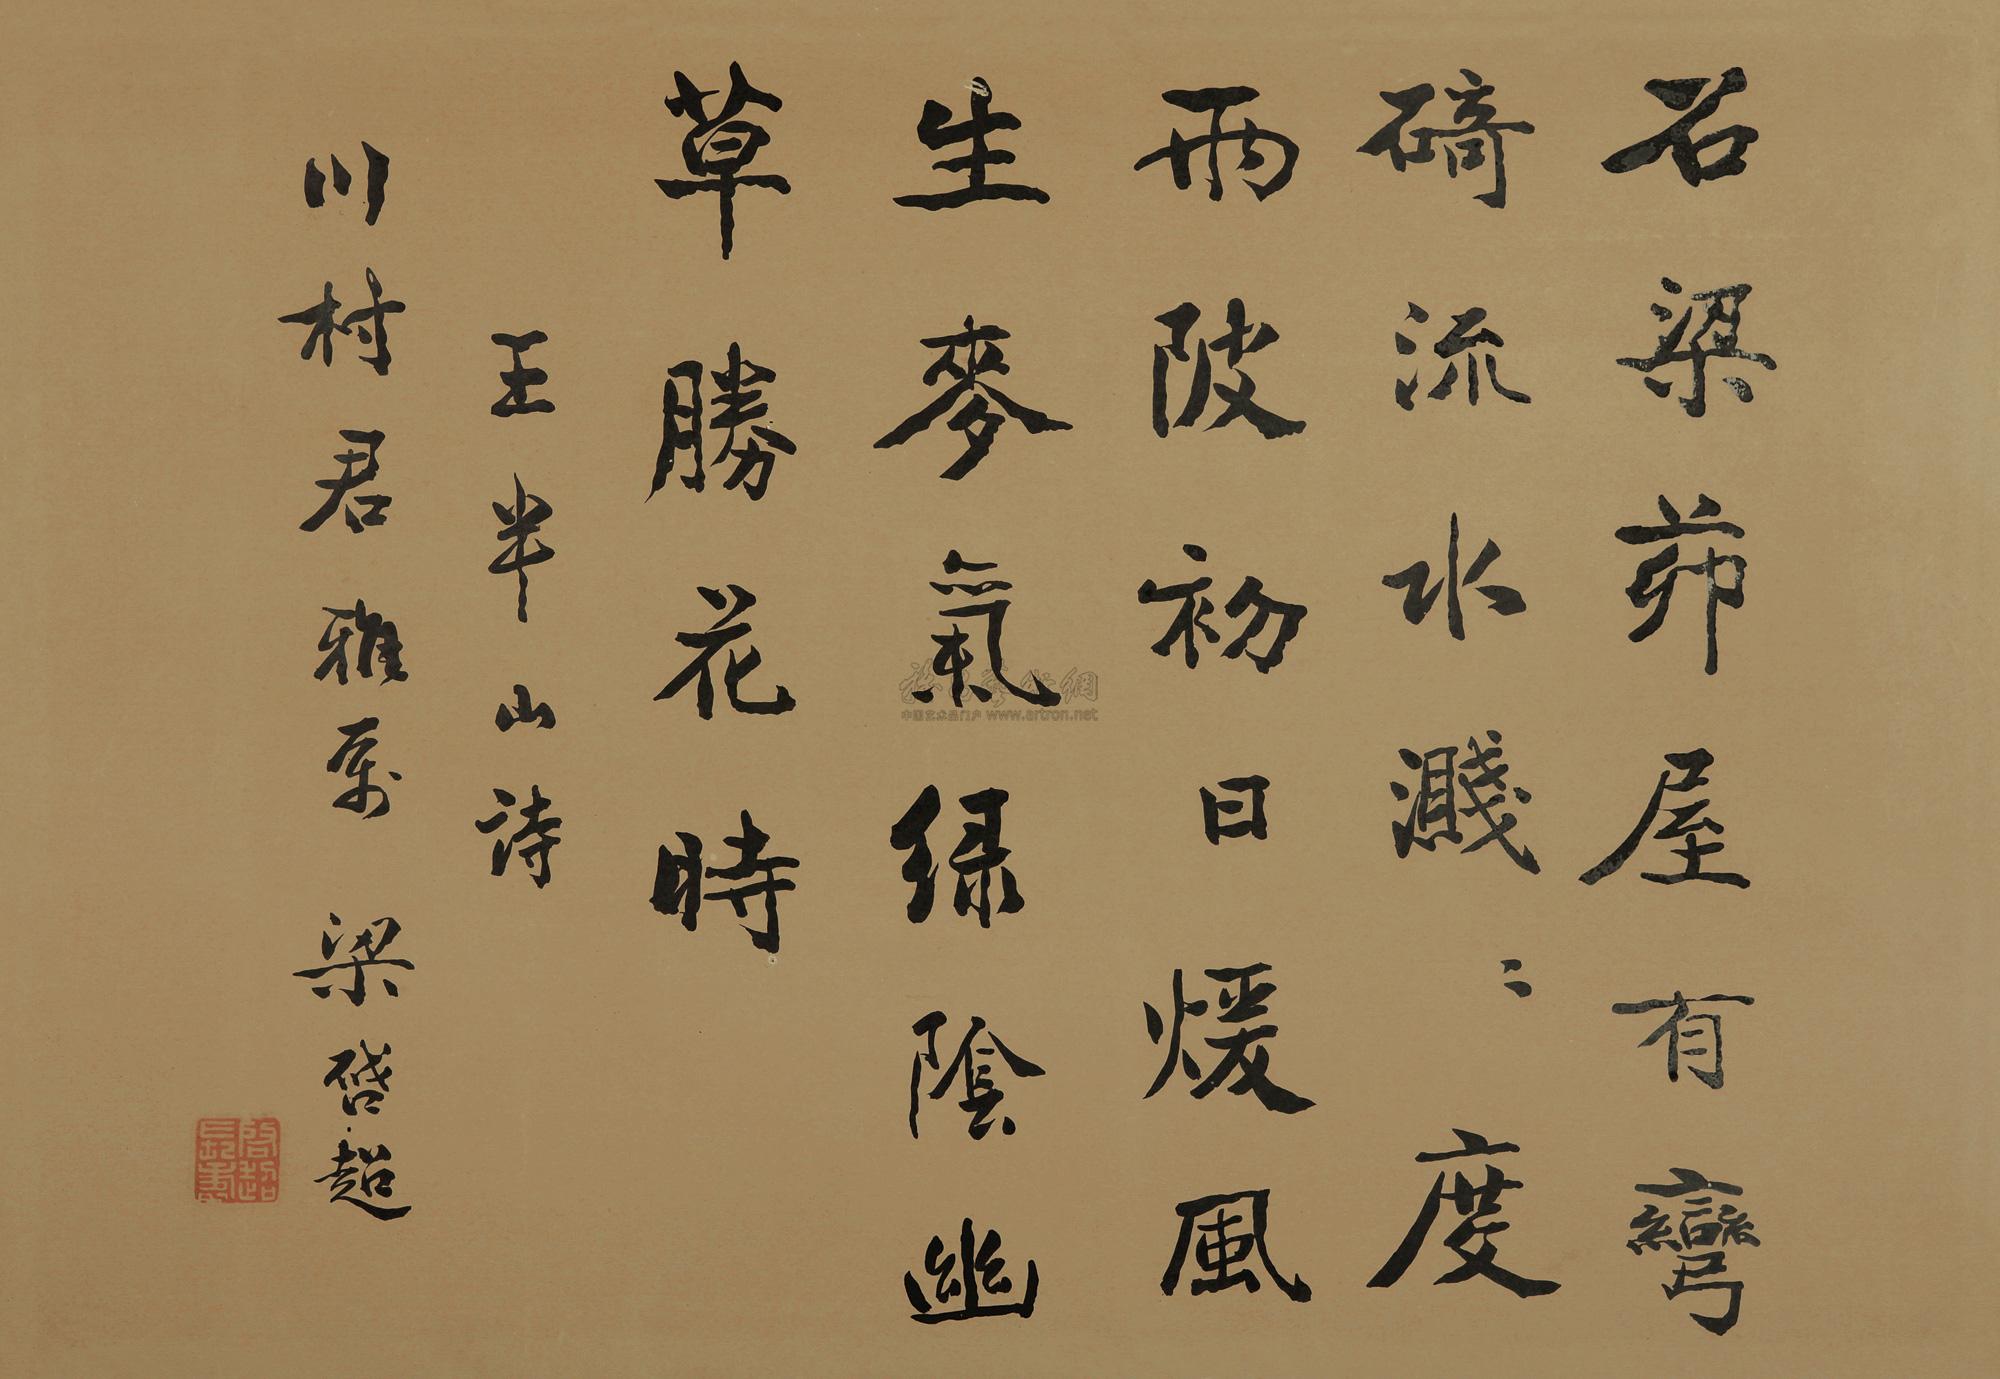 石梁茆屋有彎
碕流水濺〻度
兩陂初日煖風
生麥氣綠陰幽
草勝花時
王半山詩
川村君雅屬 梁啓超
啓超長壽
中国艺术品门户 www.artron.net